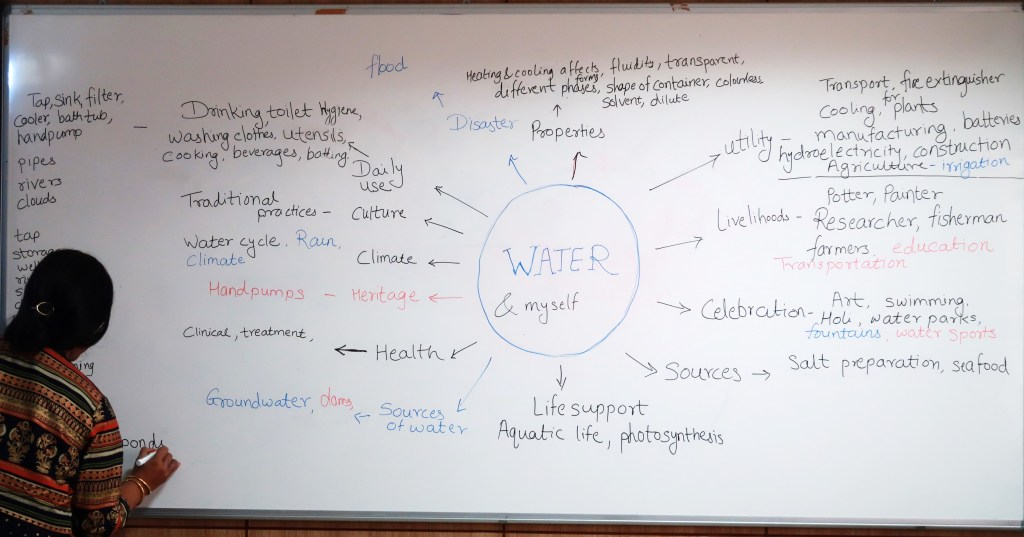 flood
Heating & cooling affects, fluidits, transparent,
different phases, shape of container, colourless
forms
solvent, dilute
Disaster
Properties
Tap, sink, filter,
cooler, bath tub,
handpump
pipes
rivers
clouds
tap
Drinking, toilet Hygiene,
washing clothes, utensils,
cooking, beverages, bathing.
Daily
uses
Traditional
practices - Culture
Water cycle. Rain,
Climate
Climate
Handpumps - Heritage
Clinical, treatment,
Health
Groundwater, dams,
Sources
of water
WATER
& myself
Life support
Aquatic life, photosynthesis
Transport, fire extinguisher
cooling, for plants
utility - manufacturing, batteries
hydroelectricity, construction
Agriculture - irrigation
Potter, Painter
Livelihoods - Researcher, fisherman
farmers, education
Transportation
Celebration - Art, swimming,
Holi, water parks,
fountains, water sports
Sources → Salt preparation, seafood
ponds